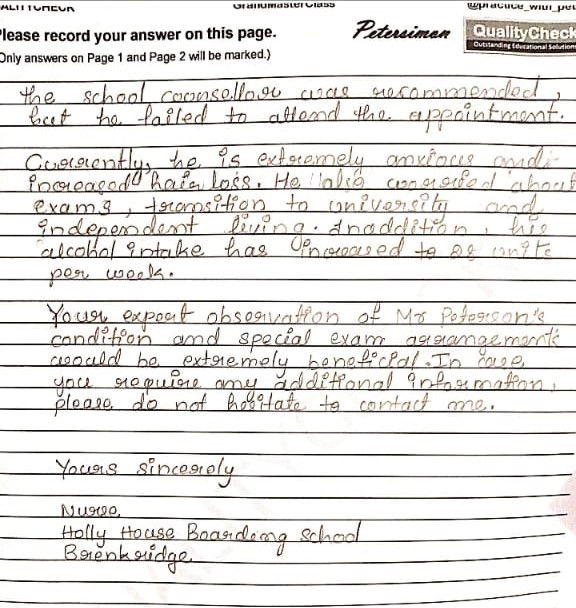 GrandmasterClass @practice_with_pet
Please record your answer on this page.
Petersiman
QualityCheck
Outstanding Educational Solution
Only answers on Page 1 and Page 2 will be marked.)
the school counsellor was recommended,
but he failed to attend the appointment.
Currently, he is extremely anxious and
increased hair loss. He also worried about
exams, transition to university and
independent living. Inaddition, his
alcohol intake has increased to 28 units
per week.
Your expert observation of Mr Peterson's
condition and special exam arrangements
would be extremely beneficial. In case,
you require any additional information,
please do not hesitate to contact me.
Yours sincerely
Nurse,
Holly House Boarding School